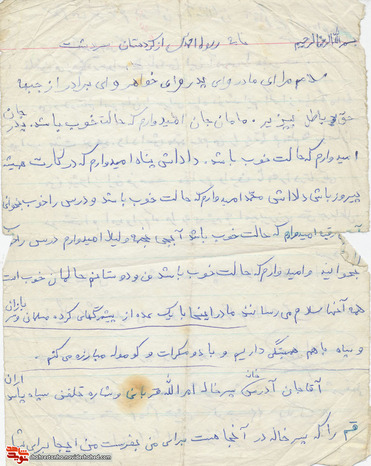 بسم الله الرحمن الرحیم از کردستان سردشت
سلام مرا ای مادر و ای پدر و ای خواهر و ای برادر از جبهه
حق و باطل بپذیر. مامان جان امیدوارم که حالت خوب باشد. پدر جان
امیدوارم که حالت خوب باشد. داداشی پناه امیدوارم که در کارت همیشه
پیروز باشی داداشی محمد امیدوارم که حالت خوب باشد و درس را خوب بخوانی
امیدوارم که حالت خوب باشد آبجی نجمه و لیلا امیدوارم درس را خوب
بخوانید و امیدوارم که حالت خوب باشد من و دوستانم حالمان خوب است
همه آنها سلام می رسانند مادر اینجا با یک عده از پیشمرگهای کرد مسلمان و پاسداران
و سپاه با هم همبستگی داریم و با دمکرات و کومله مبارزه می کنم.
آقاجان آدرس پسرخاله امرالله خان قربانی و شماره تلفن سپاه پاسداران
قم را که پسرخاله در آنجا هست برای من بفرست من اینجا برای شما
shohrateshgh.navideshahed.com